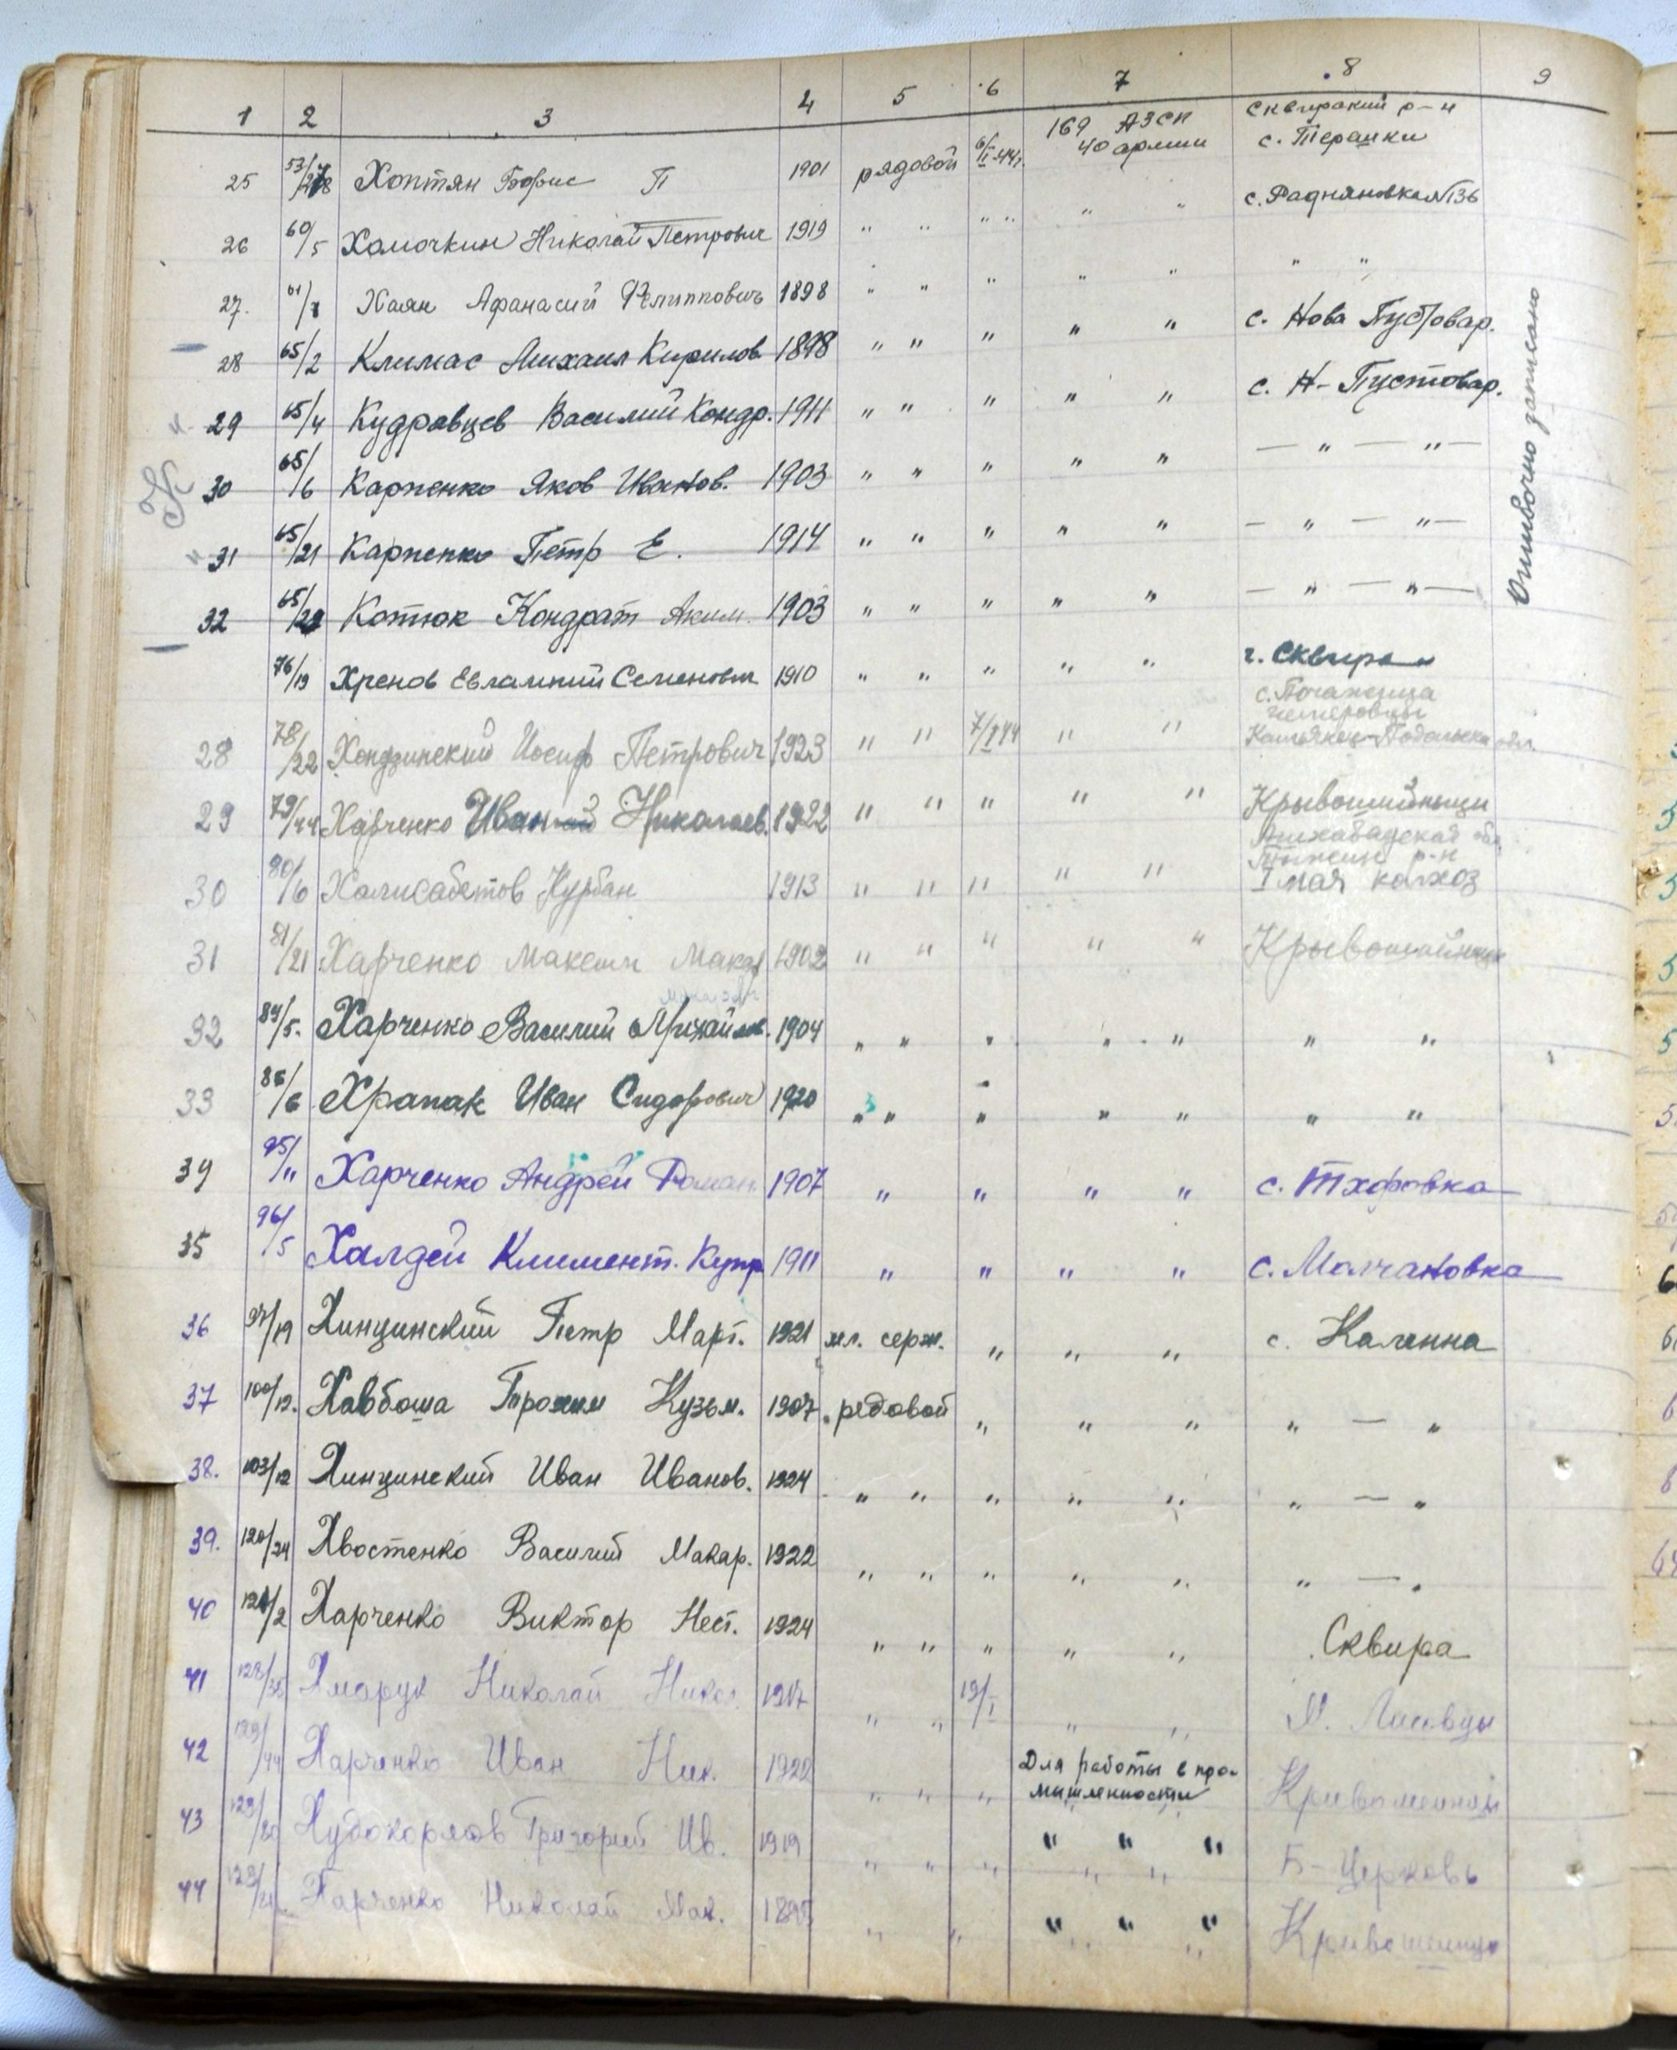 1 2 3 4 5 6 7 8 9
25 Хоптян Борис П 1901 рядовой 169 АЗСП 40 армии Сквирский р-н с. Терашки
26 60/5 Хомочкин Николай Петрович 1919 " " " " " " с. Радняновка №136
27. 61/1 Хаян Афанасий Филиппович 1898 " " " " " " "
28 65/2 Климас Михаил Кирилов. 1898 " " " " " с. Нова Пустовар.
29 65/4 Кудравцев Василий Кондр. 1911 " " " " " с. Н-Пустовар.
30 65/6 Карпенко Яков Иванов. 1903 " " " " " — " — " —
31 65/21 Карпенко Петр Е. 1914 " " " " " — " — " —
32 65/22 Котюк Кондрат Аким. 1903 " " " " " — " — " —
Ошибочно записано
К
76/19 Хренов Евлампий Семенович 1910 " " " " " г. Сквира
28 78/22 Хондзинский Иосиф Петрович 1923 " " 7/I 44 " " Каменец-Подольск обл.
29 79/44 Харченко Иван Николаев. 1922 " " " " " Крывошийнци
30 80/6 Халисабетов Курбан 1913 " " " " " Ашхабадская обл. р-н I мая колхоз
31 81/21 Харченко Максим Макар 1902 " " " " " Крывошийнци
32 84/5. Харченко Василий Михайлов. 1904 " " " " " " "
33 86/6 Храпак Иван Сидорович 1920 " " " " " " "
34 95/11 Харченко Андрей Роман. 1907 " " " " с. Тхоровка
35 96/5 Халдей Климент. 1911 " " " " с. Молчановка
36 97/19 Хинцинский Петр Март. 1921 мл. серж. " " " с. Каленна
37 100/12. Хавбоша Трохим Кузьм. 1907 рядовой " " " " — "
38. 103/12 Хинцинский Иван Иванов. 1924 " " " " " " — "
39. 120/24 Хвостенко Василий Макар. 1922 " " " " " " — "
40 121/2 Харченко Виктор Нест. 1924 " " " " " Сквира
41 Хмарук Николай Никол. 1917 " " 19/I " " М. Лисовцы
42 129/44 Харченко Иван Ник. 1922 " " " Для работы в про- мышленности
43 Худокормов Григорий Ив. 1919 " " " " " " Б-Церковь
44 Харченко Николай Мак. " " " " " Кривошеинцы